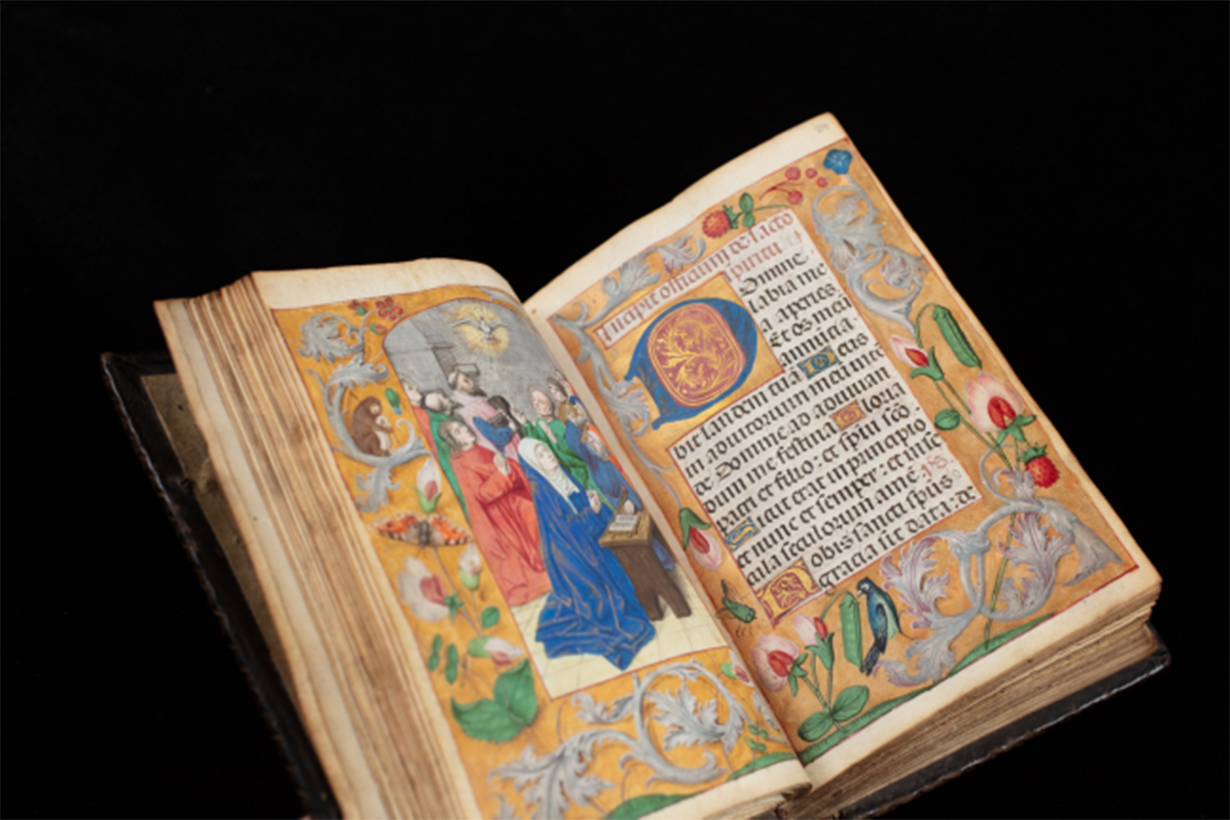 Incipit officium de sancto
spiritu
Domine
labia me
a aperies.
Et os meū
annūcia
bit laudem tuā Deus
in adiutorium meū inten
de Domine ad adiuuan
dum me festina Gloria
patri et filio: et spiri scō.
Sicut erat in principio
et nunc et semper: et in se
cula seculorum amē. ps.
Nobis sancti spūs
gracia sit data: de